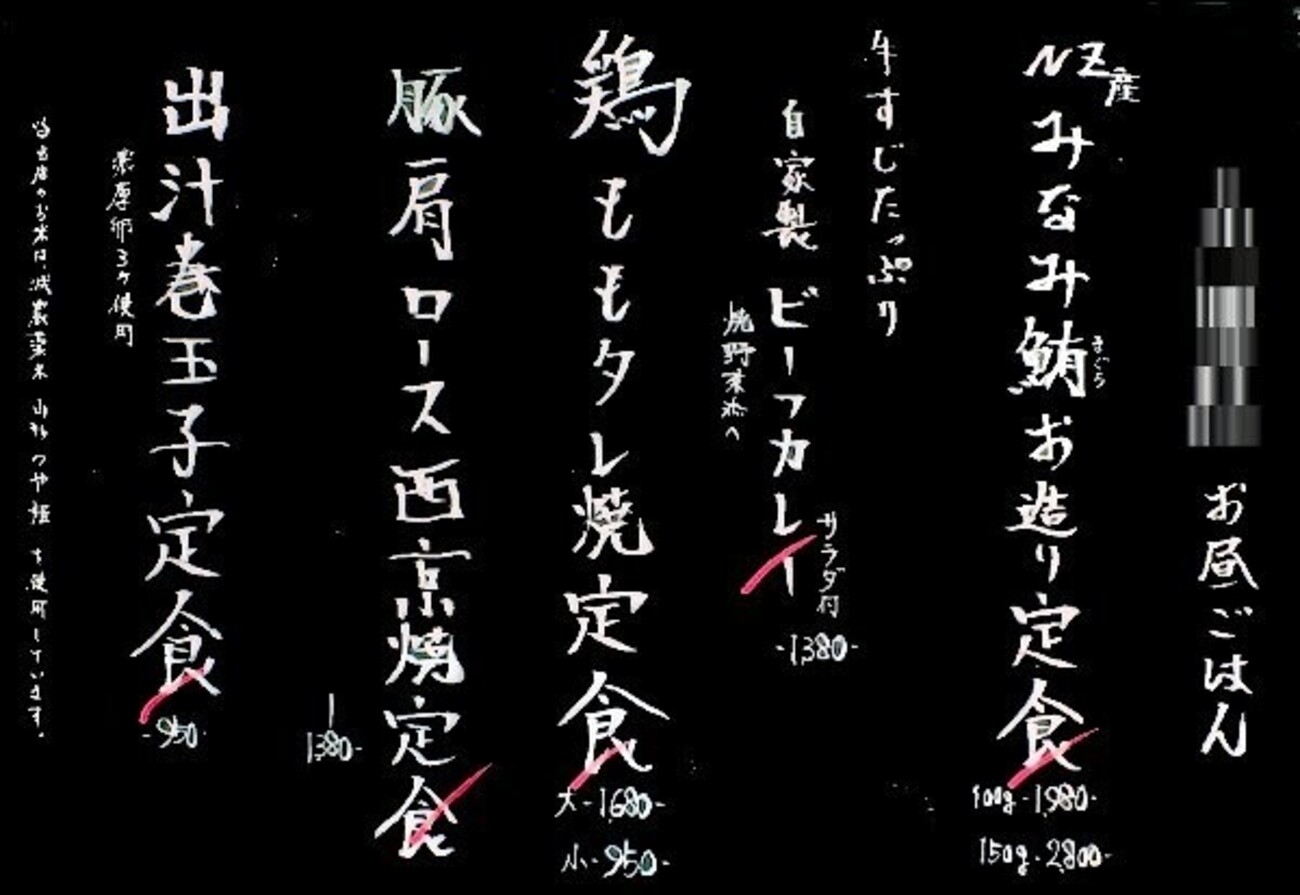 お昼ごはん
NZ産
みなみ鮪お造り定食
まぐろ
100g-1,980-
150g-2,800-
牛すじたっぷり
自家製ビーフカレー
サラダ付
-1,380-
焼野菜添へ
鶏ももタレ焼定食
大-1,680-
小-950-
豚肩ロース西京焼定食
1,380-
出汁巻玉子定食
-950-
濃厚卵3ケ使用
当店のお米は、減農薬米 山形つや姫 を使用しています。